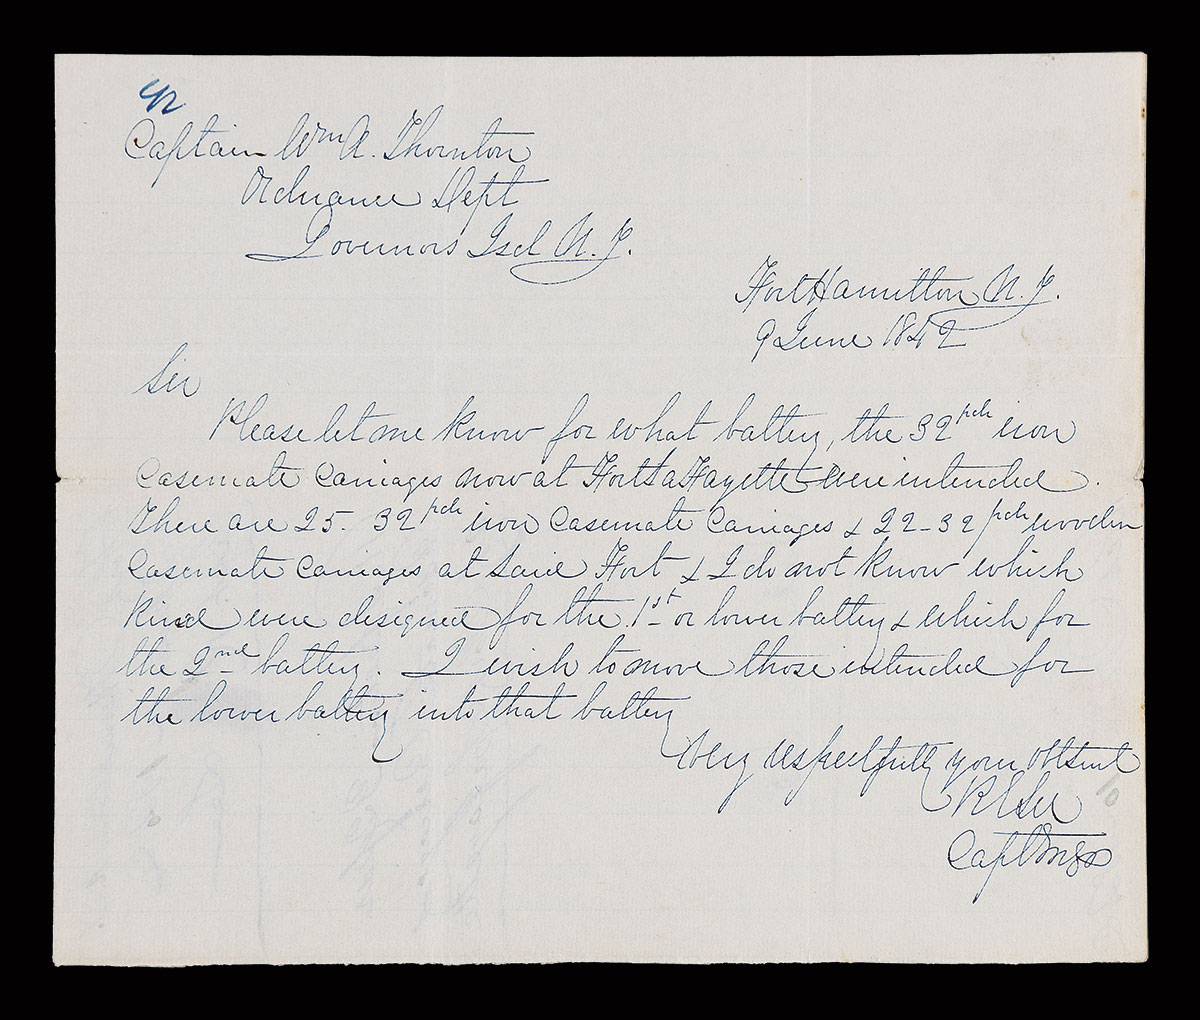 42
Captain Wm A. Thornton
Ordnance Dept
Governors Isld N. Y.
Fort Hamilton N. Y.
9 June 1842
Sir
Please let me know for what battery, the 32 pdr iron
Casemate Carriages now at Fort La Fayette were intended.
There are 25- 32 pdr iron Casemate Carriages & 22-32 pdr wooden
Casemate Carriages at said Fort & I do not know which
kind were designed for the 1st or lower battery & which for
the 2nd battery. I wish to move those intended for
the lower battery into that battery
Very respectfully your Obt Servt
R E Lee
Capt Engs